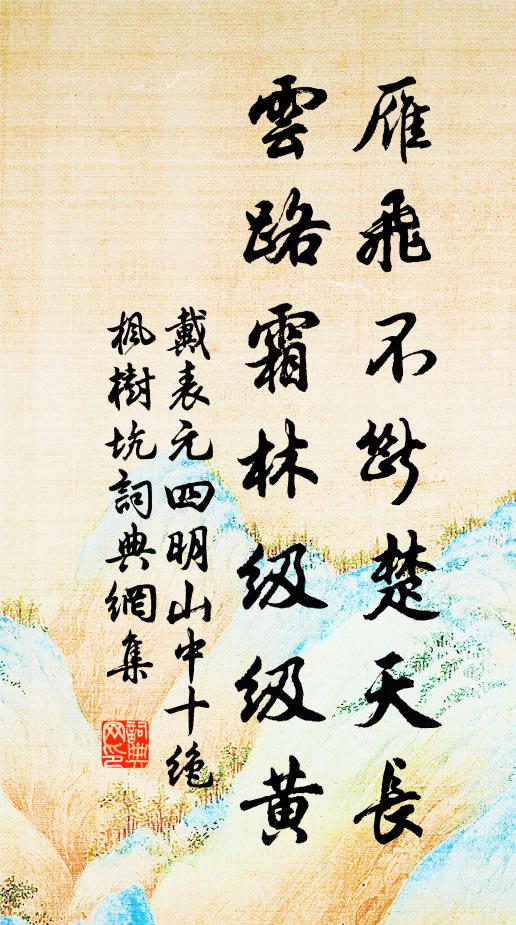 雁飛不断楚天長
雲路霜林级级黄
戴表元四明山中十绝
楓樹坑詞典網集
詞典網印